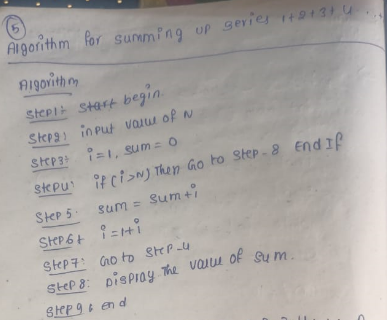 5
Algorithm for summing up series 1+2+3+4...
Algorithm
Step1: Start begin.
Step2: input value of N
Step3: i=1, sum=0
Step4: if (i>N) Then Go to Step-8 End If
Step 5. sum = sum+i
Step6: i=1+i
Step7: Go to Step-4
Step 8: Display The value of sum.
Step 9: end